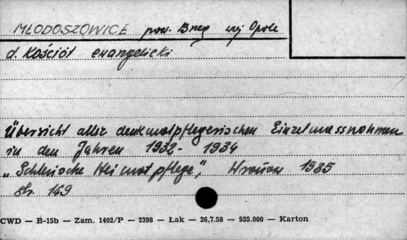 MŁODOSZOWICE pow. Brzeg wj Opole
d. Kościół ewangelicki
Übersicht aller denkmalpflegerischen Einzelmassnahmen
in den Jahren 1932 - 1934
"Schlesische Heimatpflege", Wrocław 1935
Str. 149
CWD — B-15b — Zam. 1402/P — 2398 — Łak — 26.7.58 — 935.000 — Karton